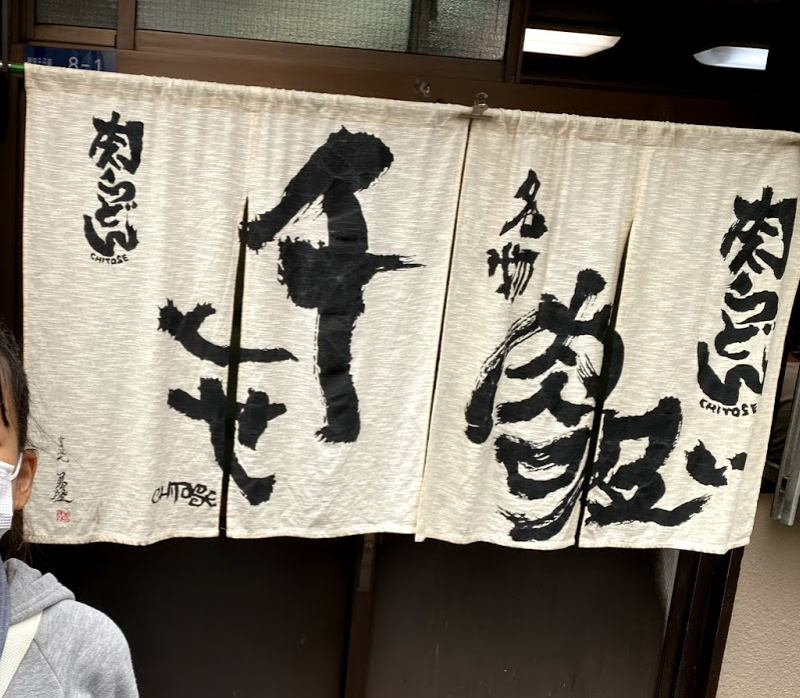 8-1
肉うどん
CHITOSE
名物
肉吸い
千とせ
CHITOSE
肉うどん
CHITOSE